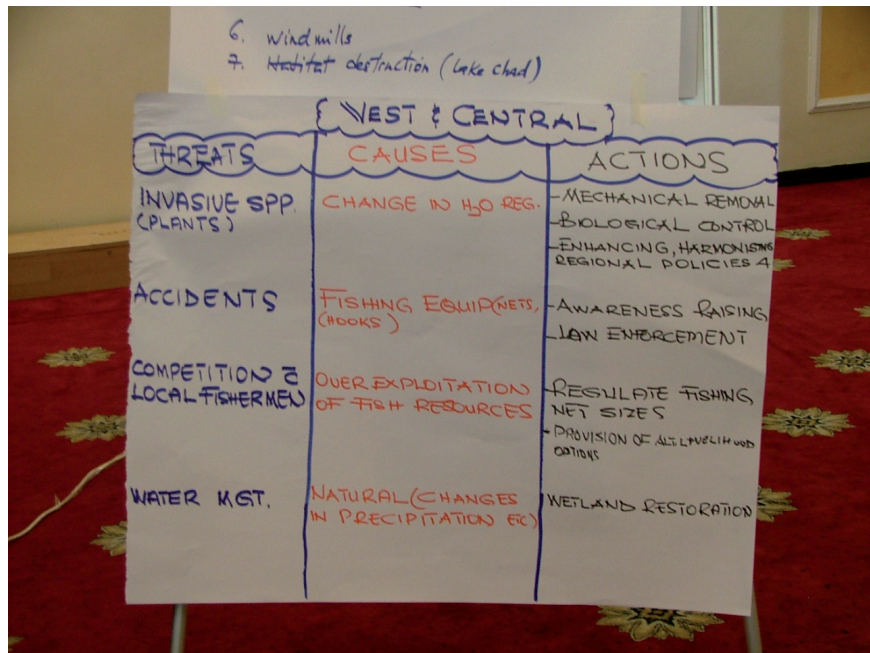 6. windmills
7. Habitat destruction (Lake Chad)
WEST & CENTRAL
THREATS
CAUSES
ACTIONS
INVASIVE SPP.
(PLANTS)
CHANGE IN H2O REG.
- MECHANICAL REMOVAL
- BIOLOGICAL CONTROL
- ENHANCING, HARMONISING
REGIONAL POLICIES 4
ACCIDENTS
FISHING EQUIP (NETS,
(HOOKS)
- AWARENESS RAISING
- LAW ENFORCEMENT
COMPETITION c̄
LOCAL FISHERMEN
OVER EXPLOITATION
OF FISH RESOURCES
- REGULATE FISHING
NET SIZES
- PROVISION OF ALT. LIVELIHOOD
OPTIONS
WATER MGT.
NATURAL (CHANGES
IN PRECIPITATION ETC)
WETLAND RESTORATION